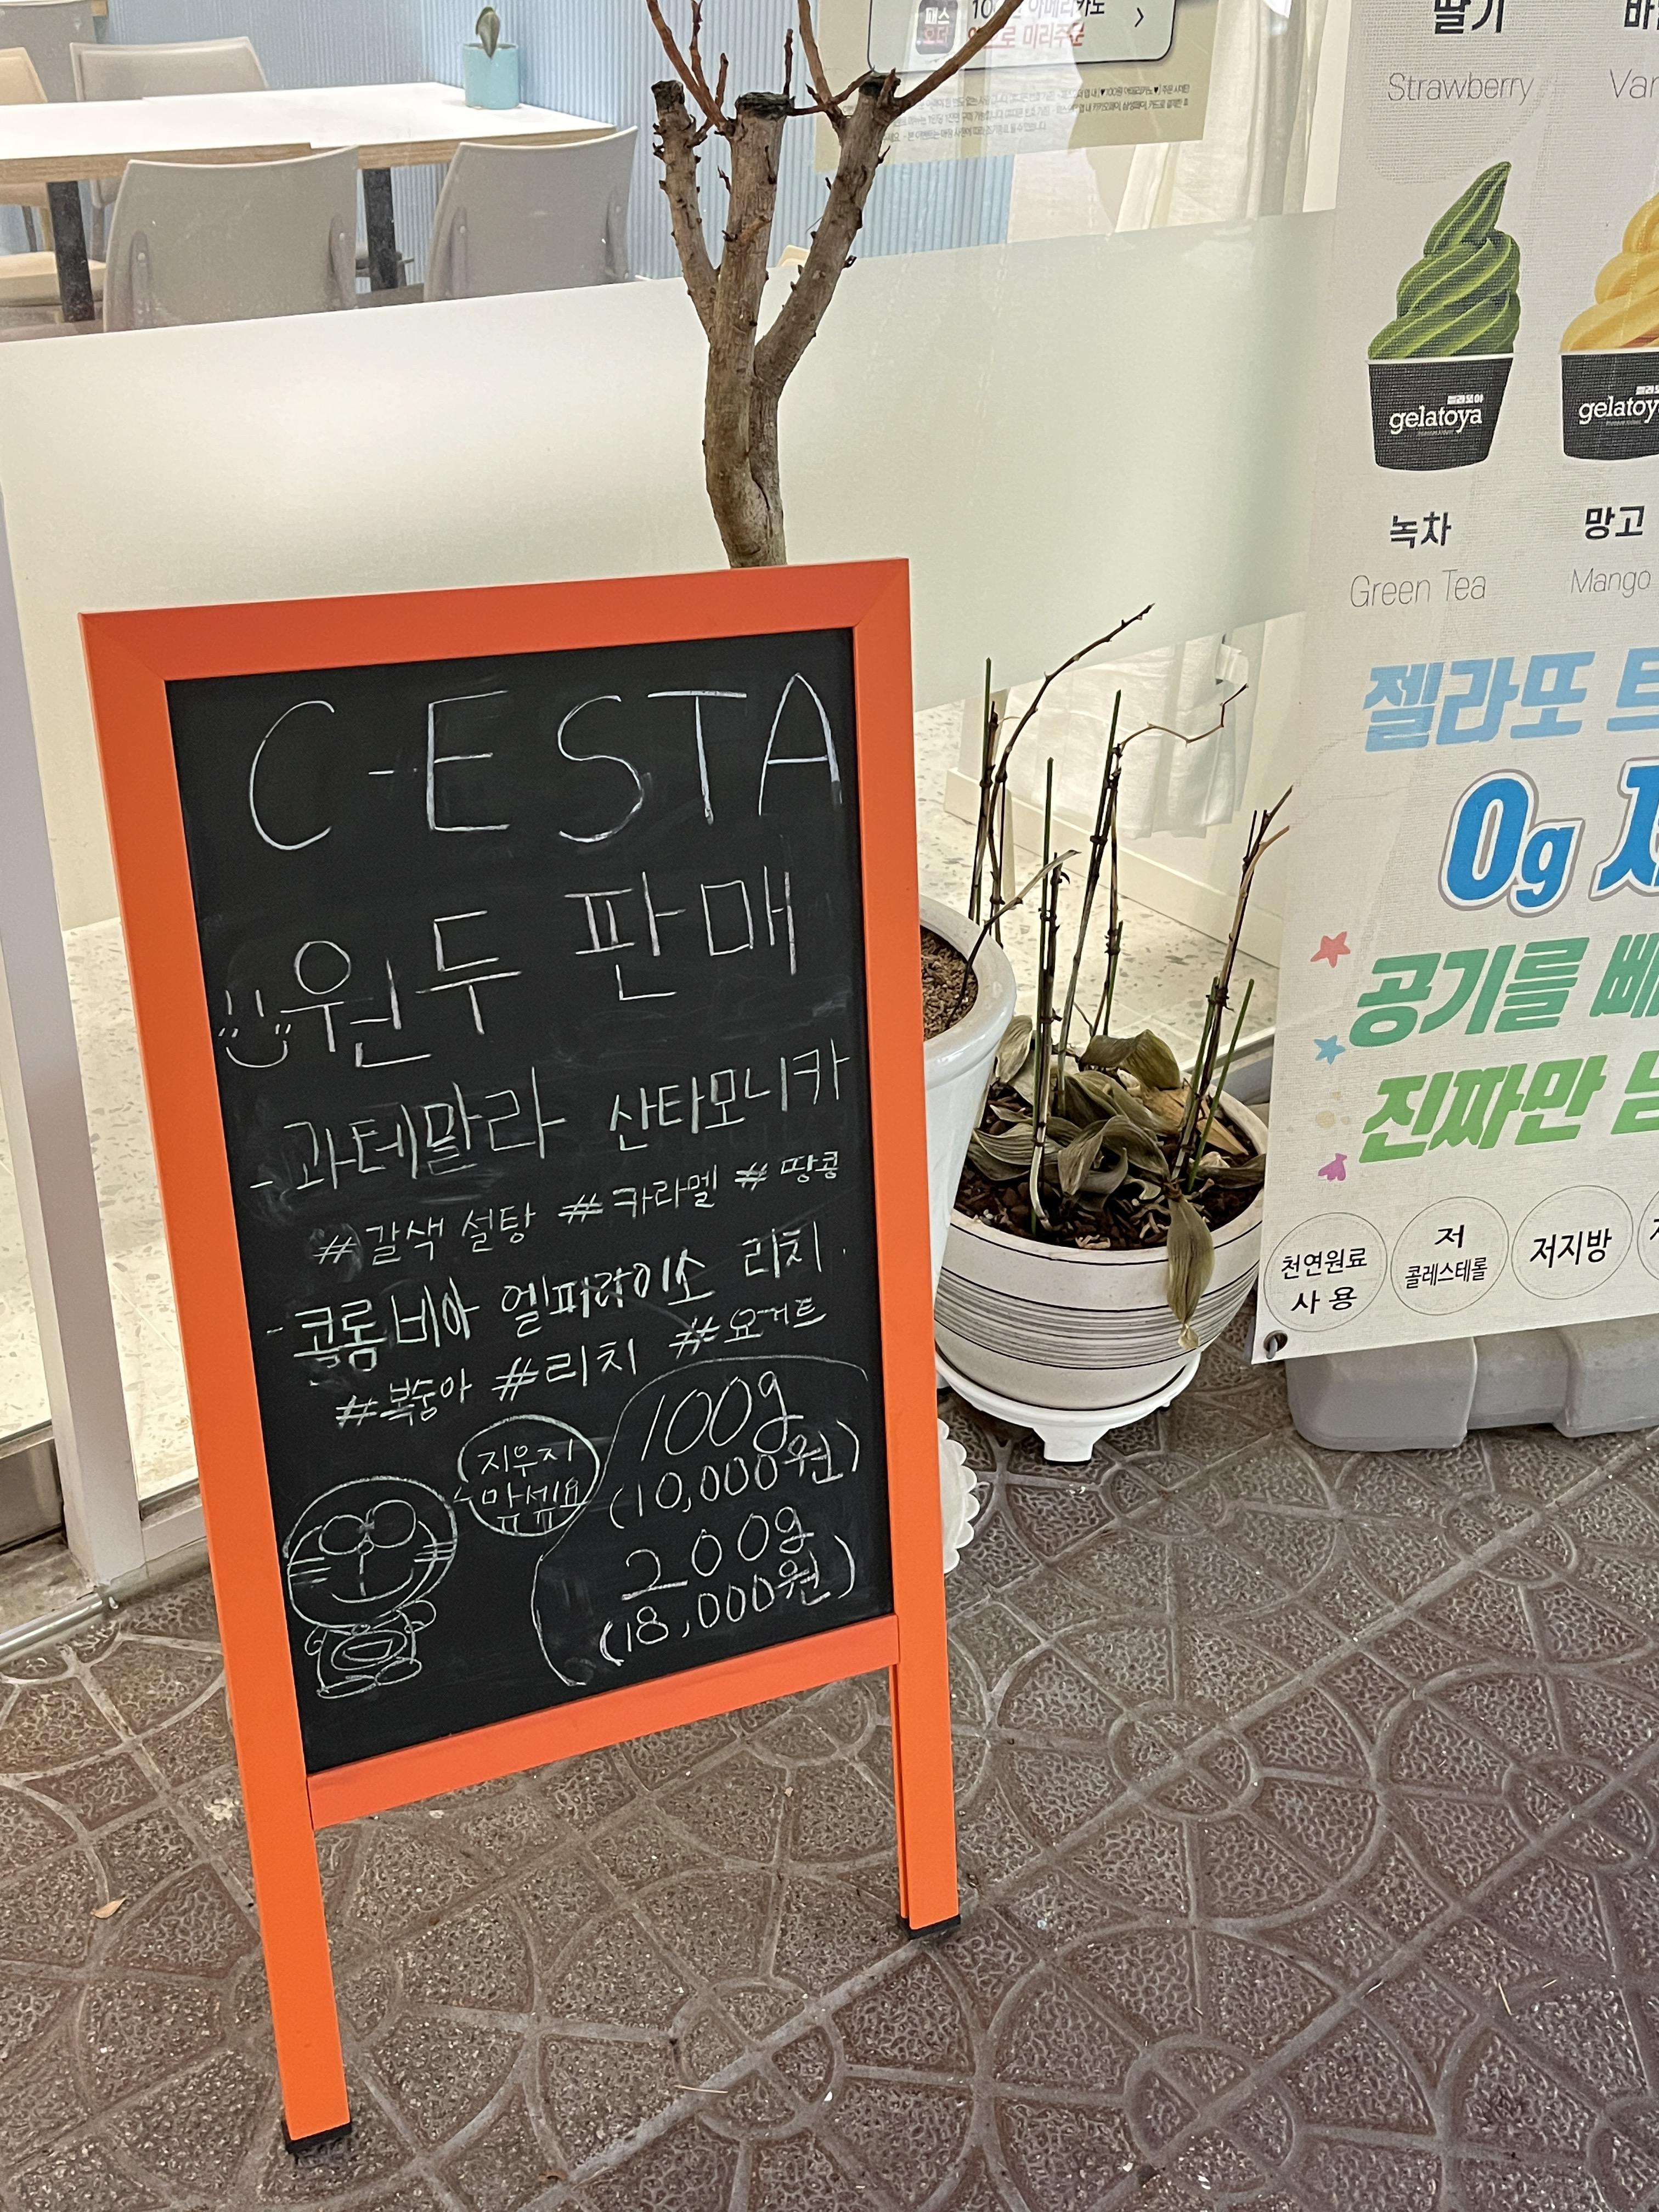 C-ESTA
원두 판매
- 과테말라 산타모니카
#갈색 설탕 #카라멜 #땅콩
- 콜롬비아 엘파라이소 리치
#복숭아 #리치 #요거트
지우지
맙세요
ㅠㅠ
100g
(10,000원)
200g
(18,000원)
아메리카노
미리주문
딸기
Strawberry
gelatoya
gelatoy
녹차
망고
Green Tea
Mango
젤라또
0g
공기를
진짜만
천연원료
사용
저
콜레스테롤
저지방